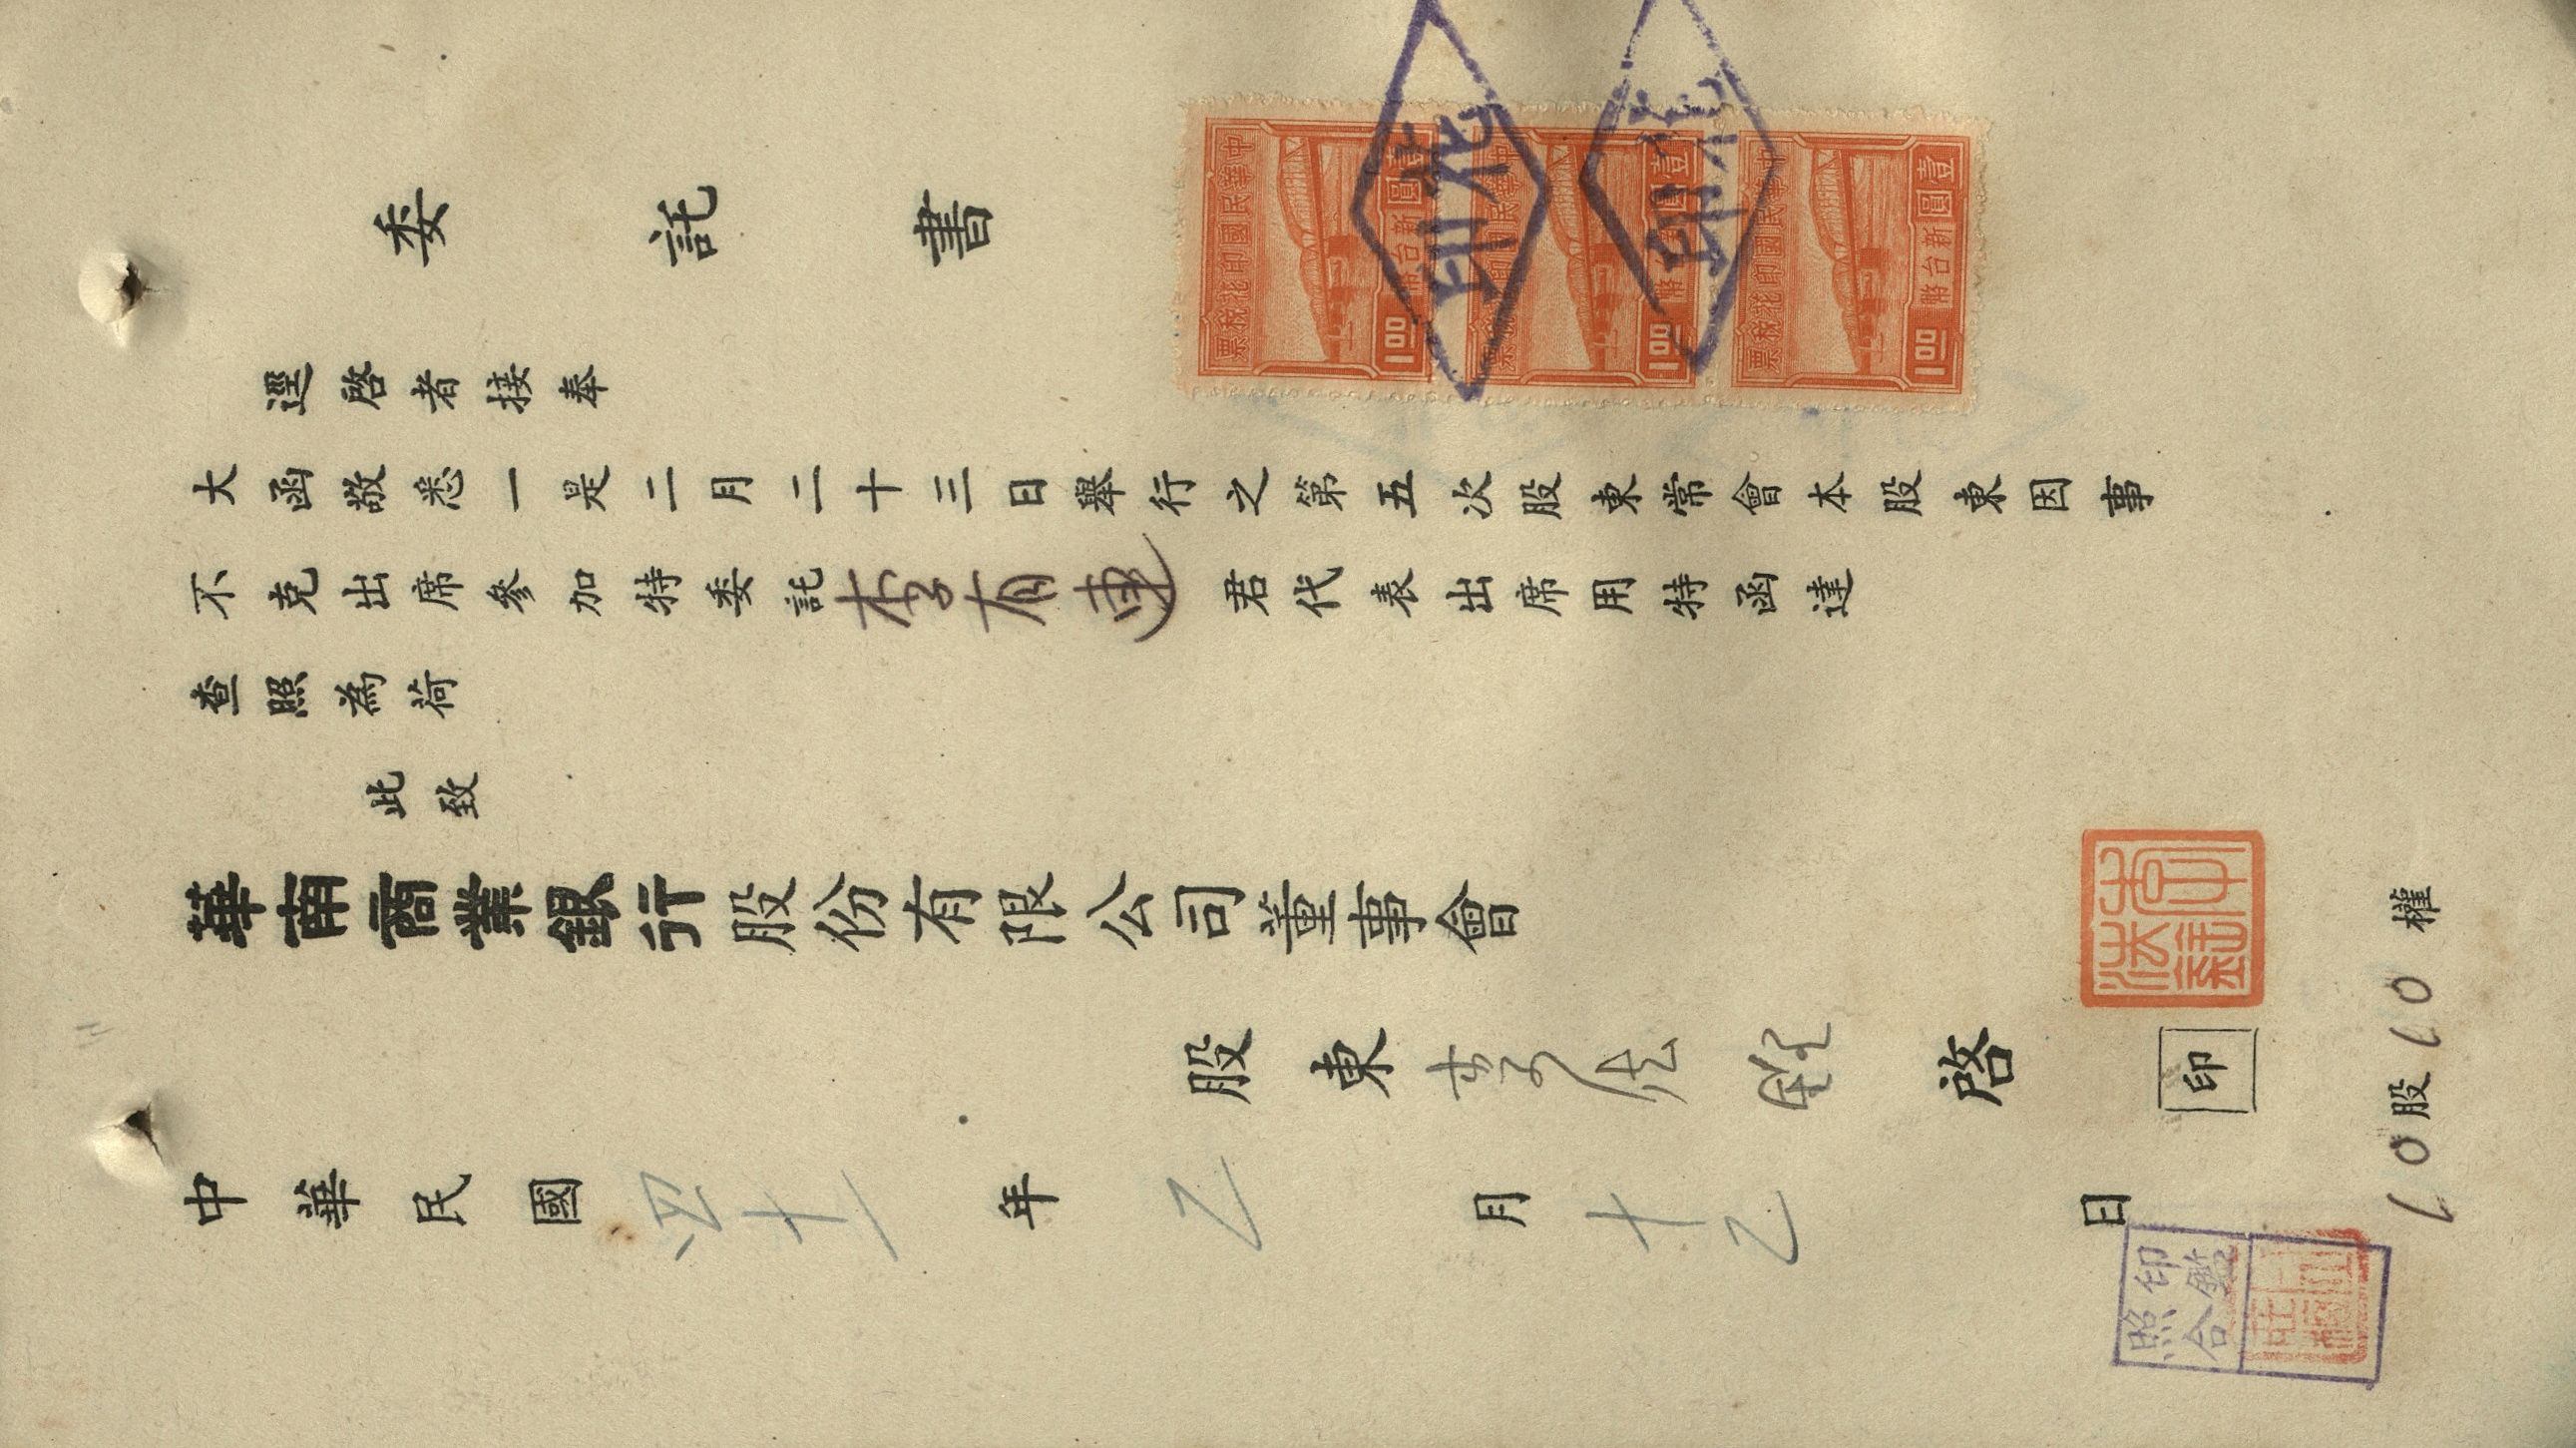 委託書
中華民國印花稅票
壹圓
新台幣
1.00
中華民國印花稅票
壹圓
新台幣
1.00
中華民國印花稅票
壹圓
新台幣
1.00
逕啓者接奉
大函敬悉一是二月二十三日舉行之第五次股東常會本股東因事
不克出席參加特委託李有連君代表出席用特函達
查照為荷
此致
華南商業銀行股份有限公司董事會
股東李法 啓 印
10股10權
中華民國四十一年2月十2日
印鑑
照合